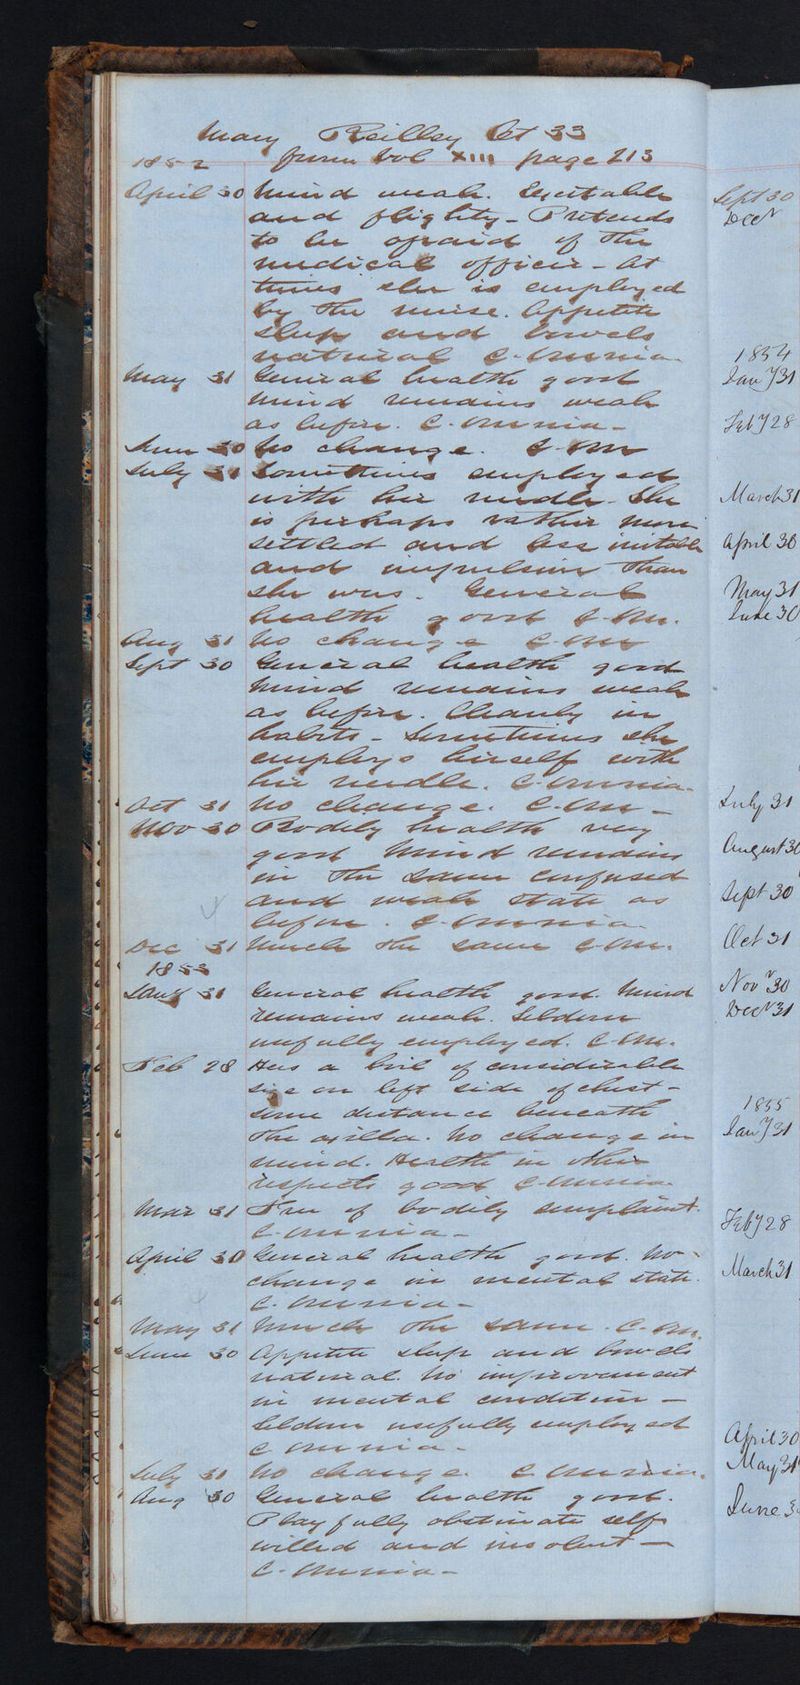 Mary Reilley Aet 33
1852 from Vol XIII page 213
April 30 Mind weak. Excitable
and flighty - Pretends
to be afraid of the
medical officer - At
times she is employed
by the nurse. Appetite
sleep and bowels
natural C. Omnia
May 31 General health good
mind remains weak
as before. C. Omnia -
June 30 No change. C. Om
July 31 Sometimes employed
with her needle. She
is perhaps rather more
settled and less irritable
and impulsive than
she was. General
health good C. Om.
Aug 31 No change C. Om
Sept 30 General health good
Mind remains weak
as before. Cleanly in
habits - Sometimes she
employs herself with
her needle. C. Omnia.
Oct 31 No change. C. Om -
Nov 30 Bodily health very
good Mind remains
in the same confused
and weak state as
before. C. Omnia
Dec 31 Much the same C. Om.
1853
Jany 31 General health good. Mind
remains weak. Seldom
usefully employed. C. Om.
Feb 28 Has a boil of considerable
size on left side of chest -
some distance beneath
the axilla. No change in
mind. Health in other
respects good C. Omnia.
Mar 31 Free of bodily complaint.
C. Omnia -
April 30 General health good. No
change in mental state.
C. Omnia -
May 31 Much the same. C. Om.
June 30 Appetite sleep and bowels
natural. No improvement
in mental condition -
Seldom usefully employed
C Omnia -
July 31 No change. C Omnia.
Aug 30 General health good.
Playfully obstinate self
willed and insolent -
C. Omnia -
Sept 30
Decr
1854
Jany 31
Feby 28
March 31
April 30
May 31
June 30
July 31
August 30
Sept 30
Oct 31
Novr 30
Decr 31
1855
Jany 31
Feby 28
March 31
April 30
May 31
June 3